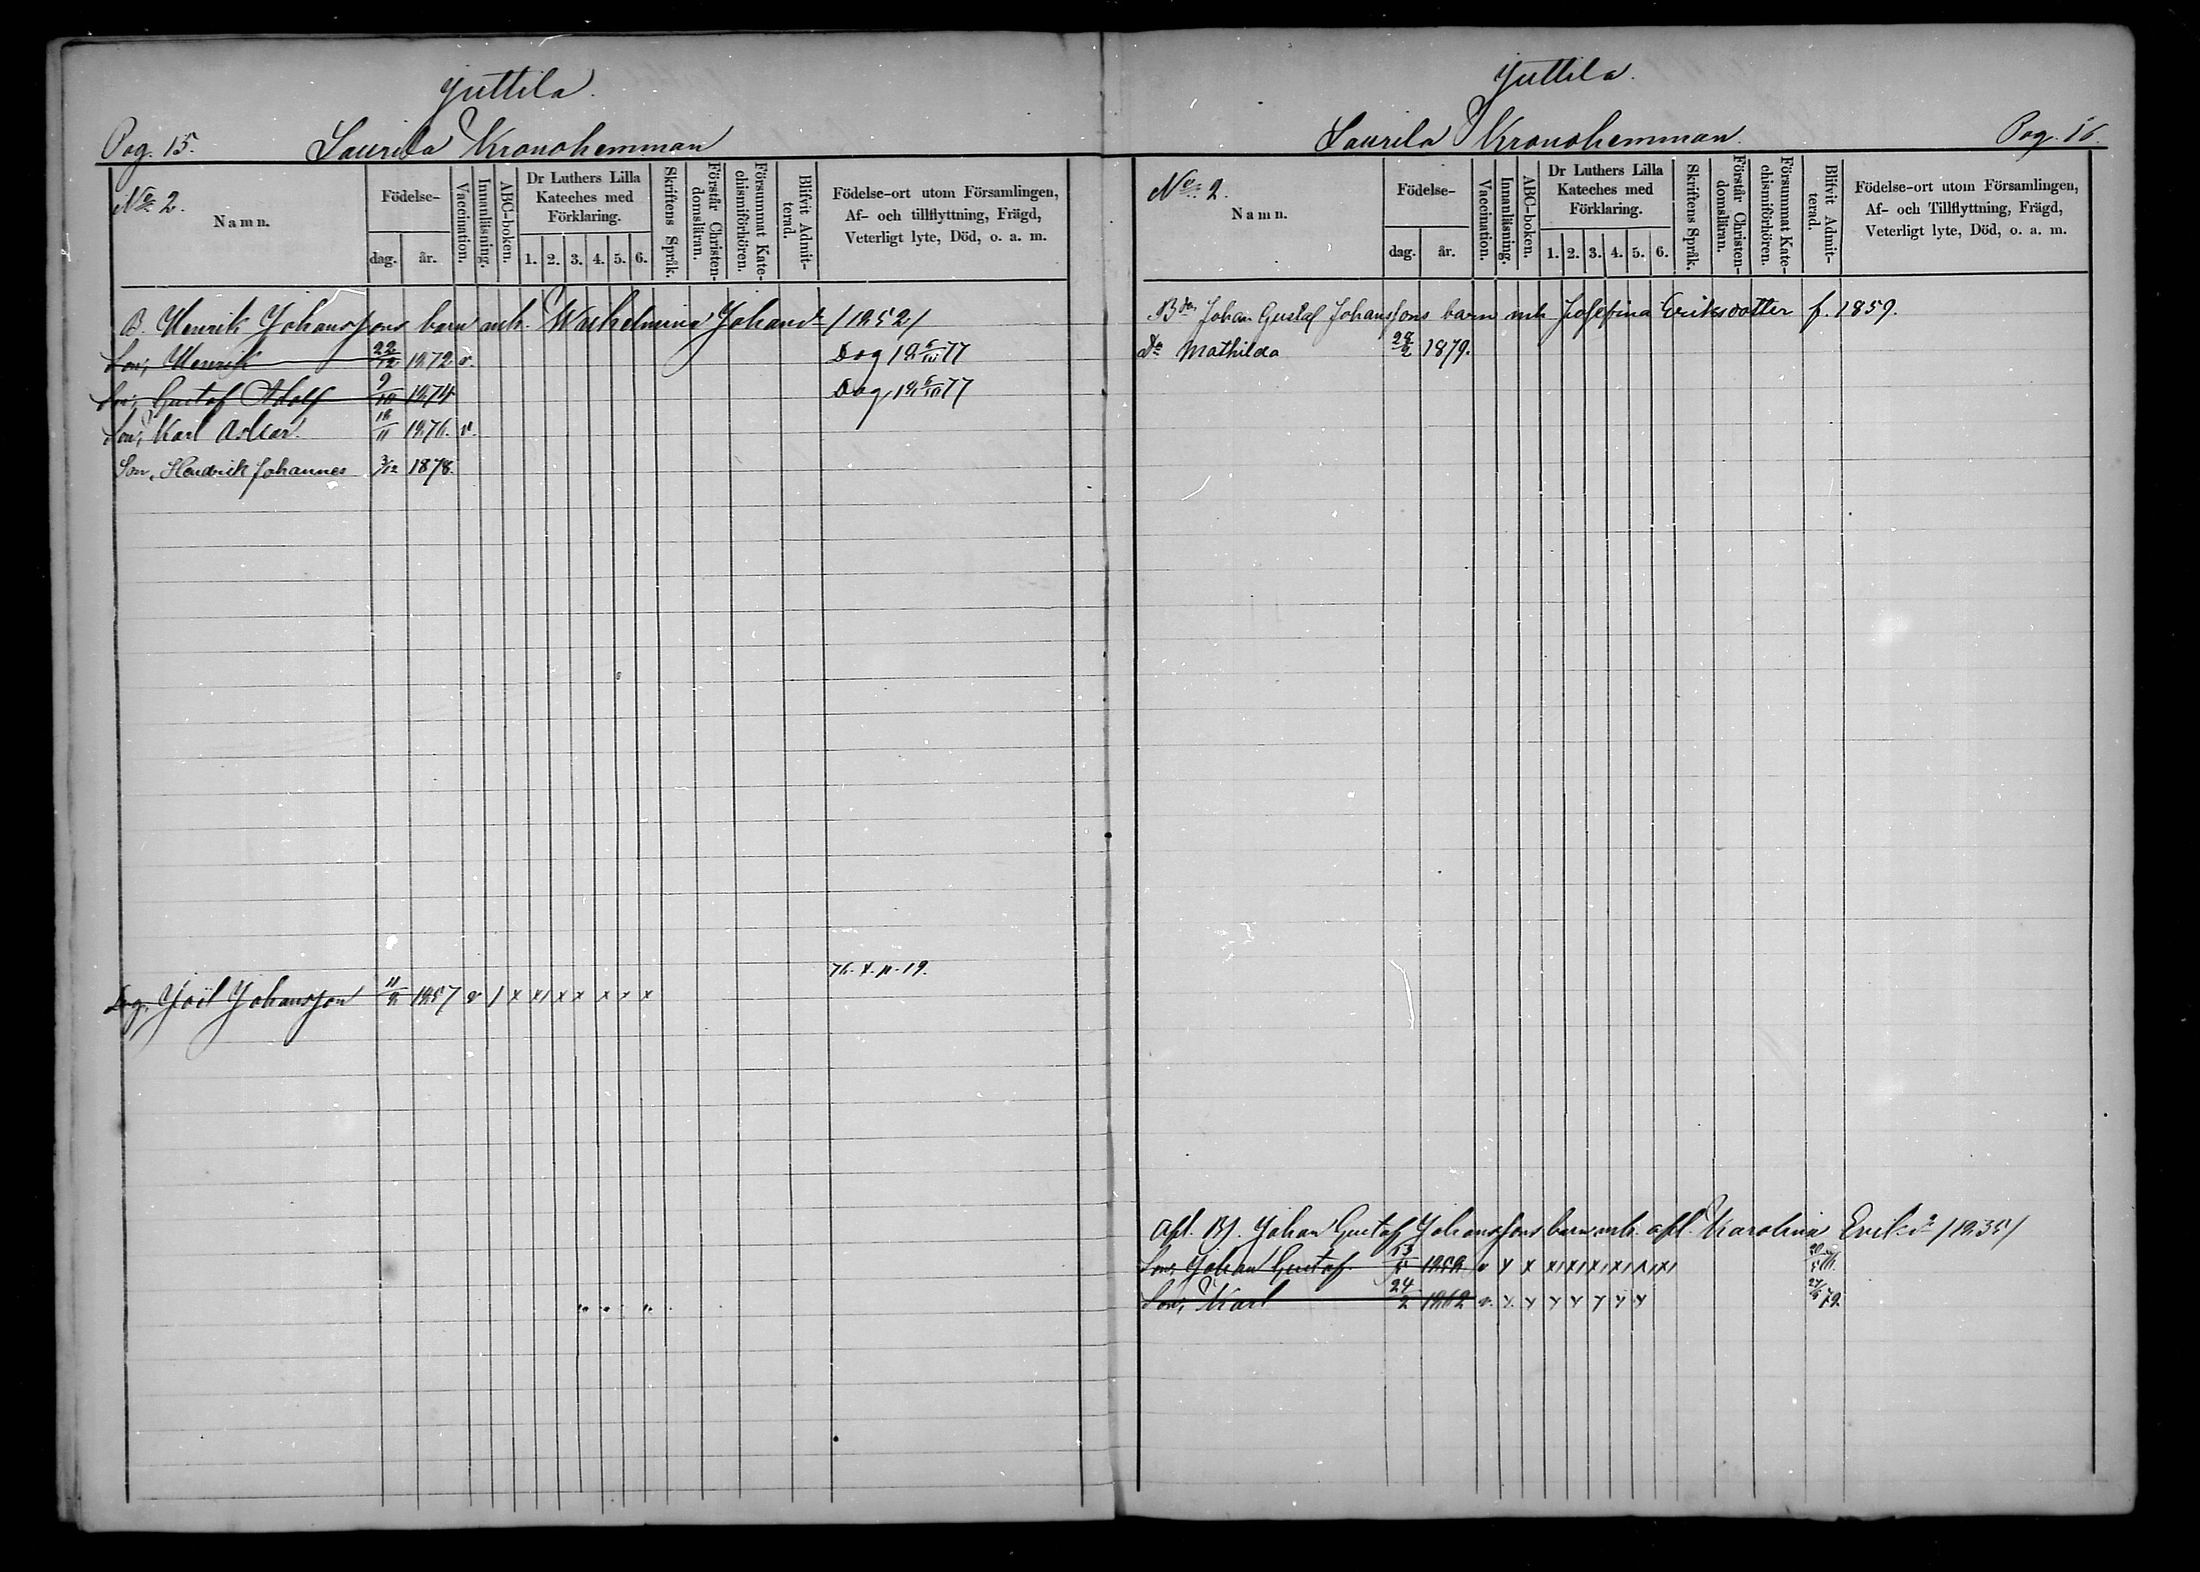 Juttila.
Pag. 15. Laurila Kronohemman
No 2.
Namn.
Födelse-
dag. år.
Vaccination.
Innanläsning.
ABC-boken.
Dr Luthers Lilla Kateches med Förklaring.
1. 2. 3. 4. 5. 6.
Skriftens Språk.
Förstår Christendomsläran.
Försummat Katechismiförhören.
Blifvit Admitterad.
Födelse-ort utom Församlingen,
Af- och tillflyttning, Frägd,
Veterligt lyte, Död, o. a. m.
B. Henrik Johanssons barn mh. Wilhelmina Johansdr /1852/
Son, Henrik 22/12 1872 v. Dog 18 77
Son, Gustaf Adolf 9/10 1874 Dog 18 77
Son, Karl Oskar 18/11 1876. v.
Son, Hendrik Johannes 3/12 1878.
76. X. p. 19.
Drg. Joël Johansson 11/8 1857 v / x x/ x x x x x
Juttila.
Laurila Kronohemman. Pag. 16.
No 2.
Namn.
Födelse-
dag. år.
Vaccination.
Innanläsning.
ABC-boken.
Dr Luthers Lilla Kateches med Förklaring.
1. 2. 3. 4. 5. 6.
Skriftens Språk.
Förstår Christendomsläran.
Försummat Katechismiförhören.
Blifvit Admitterad.
Födelse-ort utom Församlingen,
Af- och Tillflyttning, Frägd,
Veterligt lyte, Död, o. a. m.
Bdn Johan Gustaf Johanssons barn mh Josefina Eriksdotter f. 1859.
Dr Mathilda 28/2 1879.
Afl. Bd. Johan Gustaf Johanssons barn mh. afl. Karolina Eriksdr /1835/
Son, Johan Gustaf 13/5 1858 v x x x/ x/ x/ x/ x/ x/
Son, Karl 24/2 1862 v. x x x x x x x 79